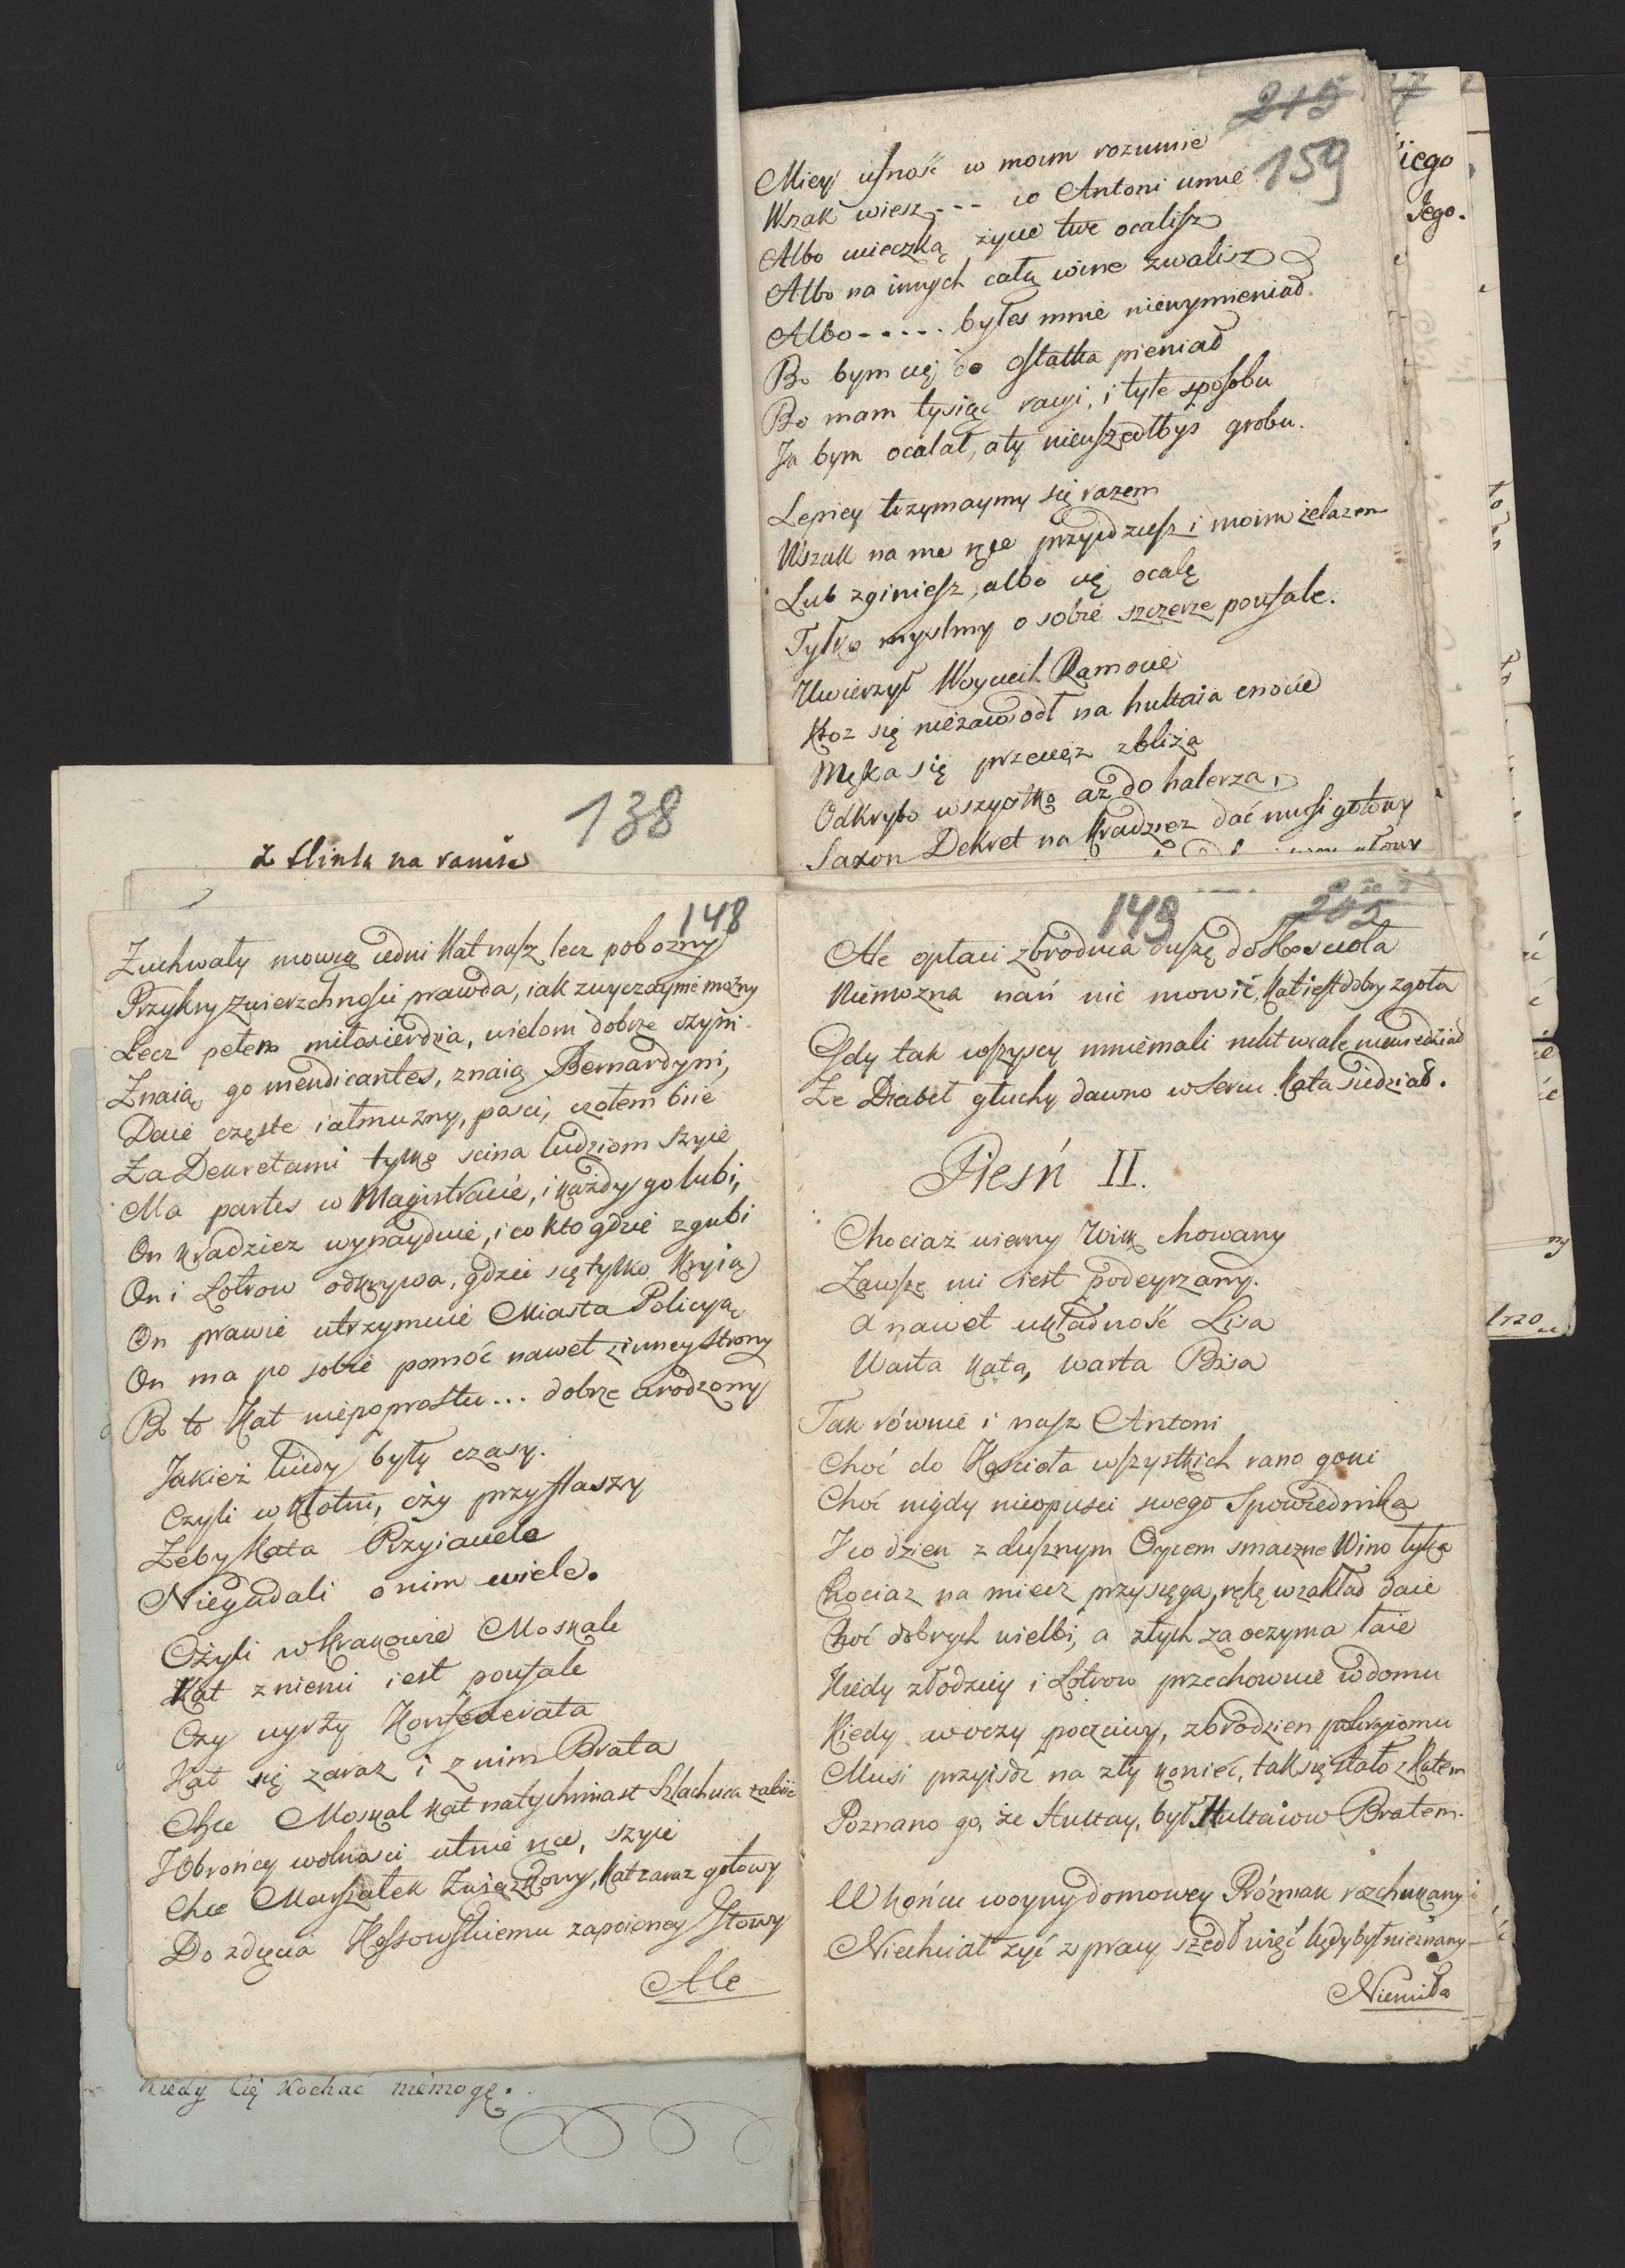 215
159
Miey ufność w moim rozumie
Wszak wiesz --- co Antoni umie
Albo ucieczką życie twe ocalisz
Albo na innych całą wine zwalisz
Albo ----- byłes mnie niewymieniał
Bo bym cię do ostatka pieniał
Bo mam tysiąc racyi, i tyle sposobu
Ja bym ocalał, a ty nieuszedłbys grobu.
Lepiey trzymaymy się razem
Wszak na me ręce przyidziesz i moim żelazem
Lub zginiesz, albo cię ocalę
Tylko myslmy o sobie szczerze poufale.
Uwierzył Woyciech Ramocie
Ktoz się niezawiodł na hultaia cnocie
Męka się przecięz zbliża
Odkryto wszystko aż do halerza
Saxon Dekret na kradziez dać musi gotowy
iego
Jego.
138
z flinta na ramie
148
Zuchwały mowią iedni Kat nasz lecz pobozny
Przykry zwierzchności prawda, iak zwyczaynie możny
Lecz pełen miłosierdzia, wielom dobrze czyni
Znaią go mendicantes, znaią Bernardyni,
Daie częste iałmuzny, pości, czołem biie
Za Dekretami tylko scina ludziom szyie
Ma partes w Magistracie, i każdy go lubi,
On kradziez wynayduie, i co kto gdzie zgubi
On i Łotrow odkrywa, gdzie się tylko kryią
On prawie utrzymuie Miasta Policyją
On ma po sobie pomoć nawet z inney strony
Bo to Kat niepoprostu... dobrze urodzony
Jakież kiedy były czasy.
Czyli w kłotni, czy przy flaszy
Zeby Kata Przyiaciele
Niegadali o nim wiele.
Czyli w Krakowie Moskale
Kat z niemi iest poufale
Czy uyrzy Konfederata
Kat się zaraz i z nim Brata
Chce Moskal kat natychmiast Szlachcica zabiie
I Obrońcy wolności utnie ręce, szyie
Chce Marszałek Związkowy, Kat zaraz gotowy
Do zdięcia Kossowskiemu zapoioney głowy
Ale
149
202
Ale opłaci zbrodnia duszę do Koscioła
Niemozna nań nic mowić, Kat iest dobry zgoła
Gdy tak wszyscy mniemali nikt wcale niewiedział
Ze Diabeł głuchy dawno w sercu Kata siedział.
Pieśń II.
Chociaz wierny Wilk chowany
Zawsze mi iest podeyrzany.
A nawet układność Lisa
Warta Kata, warta Bisa
Tak równie i nasz Antoni
Choć do Koscioła wszystkich rano goni
Choć nigdy nieopusci swego Spowiednika
I co dzien z dusznym Oycem smaczne Wino łyka
Chociaz na miecz przysięga, rękę w zakład daie
Choć dobrych wielbi, a złych za oczyma łaie
Kiedy złodziey i Łotrow przechowuie w domu
Kiedy w oczy poczciwy, zbrodzien pokryiomu
Musi przyisdz na zły koniec, tak się stało z Katem
Poznano go, że Hultay, był Hultaiow Bratem.
W Końcu woyny domowey Próżniak rozchukany
Niechciał żyć z pracy szedł więć kędy był nieznany
Niemiła
Kiedy Cię kochać niemogę.